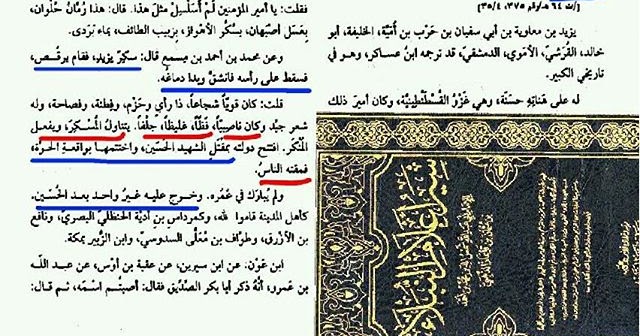 (ت ٦٤ هـ، رقم ٣٧٥، ٣٥/٤)
يزيد بن معاوية بن أبي سفيان بن حَرْب بن أُمَيَّة، الخليفة، أبو
خالد، القُرَشيّ، الأموي، الدمشقيّ، قد ترجمه ابنُ عساكر، وهو في
تاريخي الكبير.
له على هَناتِه حَسَنَة، وهي غَزْوُ القُسْطَنْطِينِيَّة، وكان أميرَ ذلك
فقلت: يا أمير المؤمنين لَم أَتَسَلْسَلْ مثلَ هذا. قال: هذا رُمَّانُ حُلْوَان،
بعَسَل أصبَهَان، بسُكَّر الأهْوَاز، بزبيب الطائف، بماء بَرَدى.
وعن محمد بن أحمد بن مِسمع قال: سكِرَ يزيد، فقام يرقُص،
فسقط على رأسه فانشقَّ وبدا دماغُه.
قلتُ: كان قوياً شجاعاً، ذا رأي وحَزْم، وفِطنة، وفصاحة، وله
شعر جيِّد وكان ناصبِيّاً، فَظّاً، غليظاً، جِلْفاً. يتناولُ المُسكِرَ، ويفعل
المُنكَر. افتتح دولتَه بمقتل الشهيد الحُسَين، واختتمها بواقعةِ الحرَّة،
فمقتَه الناسُ.
ولم يُبارَك في عُمُره. وخرج عليه غيرُ واحد بعد الحُسَين.
كأهل المدينة قاموا لله، وكمِرداس بن أُديَّة الحنظلي البصري، ونافع
بن الأزرق، وطوَّاف بن مُعَلَّى السدوسي، وابن الزُّبير بمكة.
ابن عَوْن: عن ابن سيرين، عن عقبة بن أوْس، عن عبد اللّه
بن عَمرو، أنَّه ذكر أبا بكر الصِّدِّيق فقال: أصبتُم اسْمَه، ثم قال:
سير أعلام النبلاء